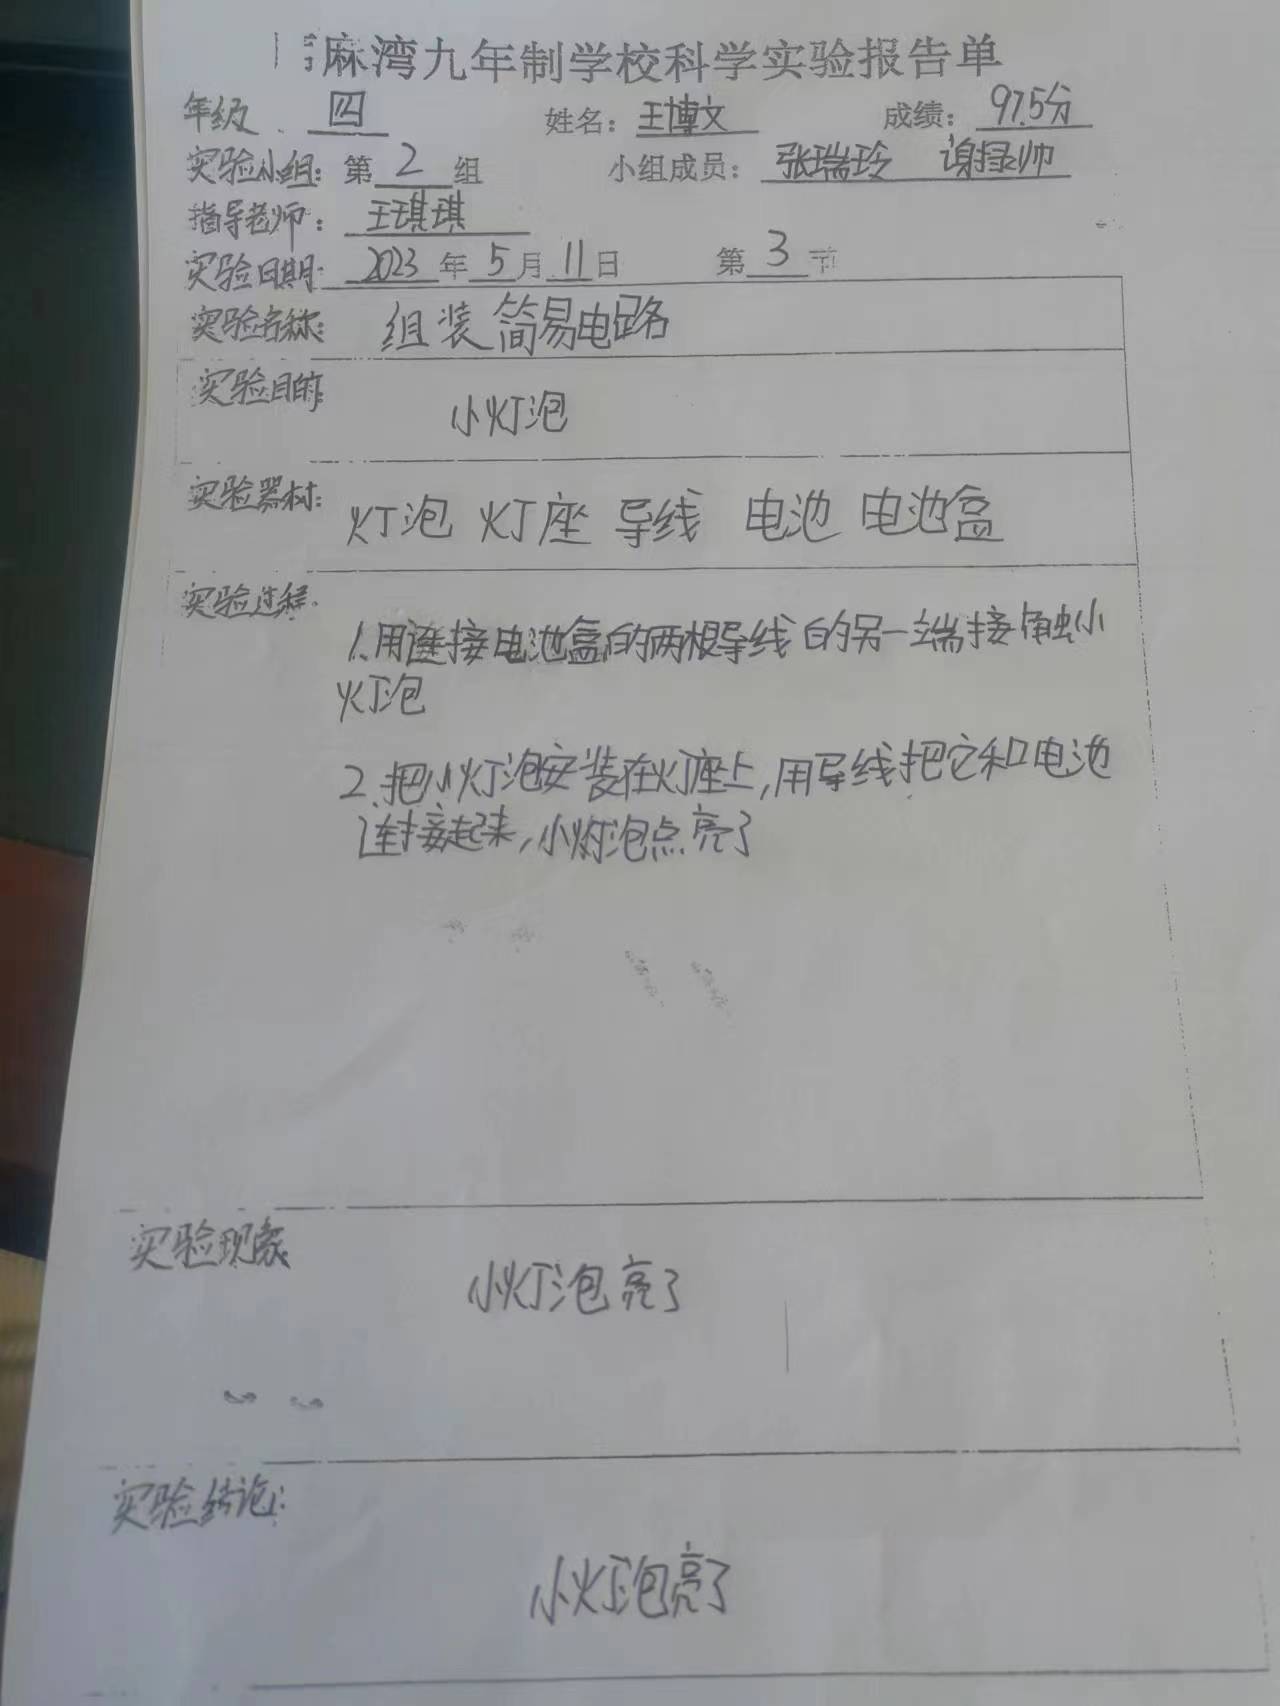 麻湾九年制学校科学实验报告单
年级 四 姓名：王博文 成绩：97.5分
实验小组：第 2 组 小组成员：张瑞玲 谢禄帅
指导老师：王琪琪
实验日期：2023 年 5 月 11 日 第 3 节
实验名称：组装简易电路
实验目的：小灯泡
实验器材：灯泡 灯座 导线 电池 电池盒
实验过程：
1.用连接电池盒的两根导线的另一端接触小
灯泡
2.把小灯泡安装在灯座上,用导线把它和电池
连接起来,小灯泡点亮了
实验现象
小灯泡亮了
实验结论：
小灯泡亮了